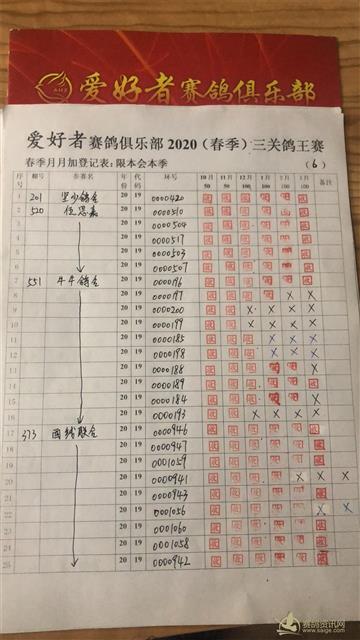 爱好者赛鸽俱乐部
爱好者赛鸽俱乐部2020(春季)三关鸽王赛
春季月月加登记表:限本会本季 (6)
序号 棚号 参赛名 年份 代码 环号 10月50 11月50 12月100 1月100 2月100 3月100 备注
1 201 鸽舍 20 19 0000420
2 520 任思嘉 20 19 0000510
3 20 19 0000504
4 20 19 0000517
5 20 19 0000503
6 20 19 0000507
7 551 牛牛鸽舍 20 19 0000196
8 20 19 0000197 X X
9 20 19 0000200 X X X X
10 20 19 0000199 X X X X
11 20 19 0000185 X X X
12 20 19 0000198 X X X
13 20 19 0000188 X
14 20 19 0000189
15 20 19 0000184 X
16 20 19 0000193 X X X X
17 373 联合 20 19 0000946
18 20 19 0000947
19 20 19 0001059
20 20 19 0000941 X X X
21 20 19 0000943
22 20 19 0001056 X X
23 20 19 0001060
24 20 19 0001058
25 20 19 0000942
赛鸽资讯网
www.saige.com